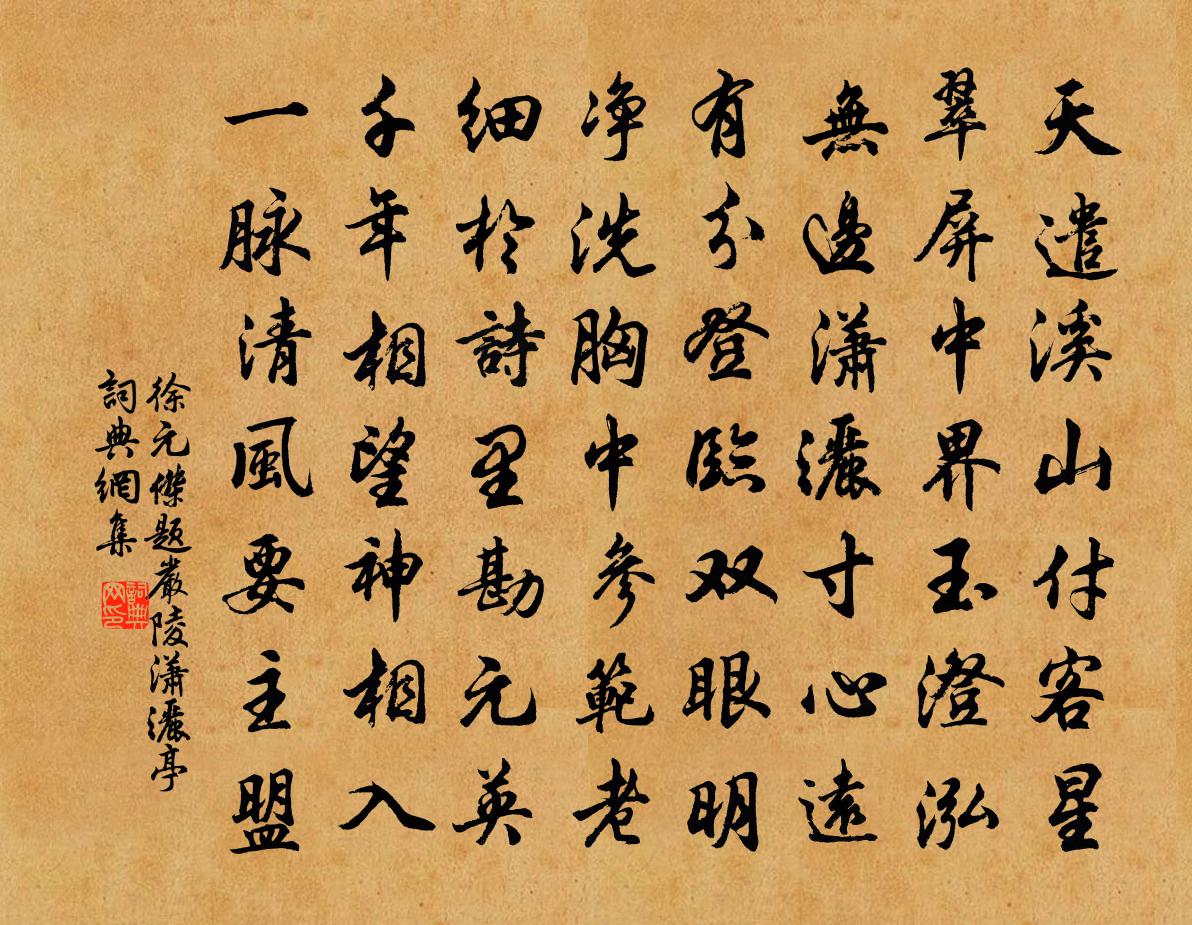 天遣溪山付客星
翠屏中界玉澄泓
無邊瀟灑寸心遠
有分登臨双眼明
净洗胸中參範老
细於詩里勘元英
千年相望神相入
一脉清風要主盟
徐元傑題嚴陵瀟灑亭
詞典網集
詞典
网印